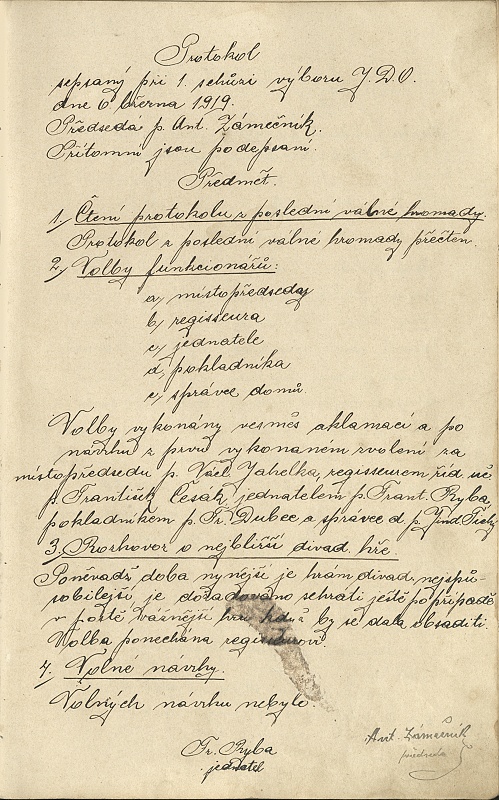 Protokol
sepsaný při 1. schůzi výboru J.D.O.
dne 6 března 1919.
Předsedá p. Ant. Zámečník.
Přítomni jsou podepsaní.
Předmět.
1, Čtení protokolu z poslední valné hromady.
Protokol z poslední valné hromady přečten.
2, Volby funkcionářů:
a, místopředsedy
b, regisseura
c, jednatele
d, pokladníka
e, správce domů.
Volby vykonány vesměs aklamací a po
návrhu z prvu vykonaném zvoleni za
místopředsedu p. Václ. Jahelka, regisseurem říd. uč.
p. František Česák, jednatelem p. Frant. Ryba,
pokladníkem p. Fr. Dubec a správce d. p. Jind. Tichý
3. Rozhovor o nejbližší divad. hře.
Poněvadž doba nynější je hrám divad. nejspů-
sobilejší je dožadováno sehrati ještě popřípadě
v postě vážnější hru když by se dala obsaditi.
Volba ponechána regisseurovi.
4. Volné navrhy.
Volných návrhu nebylo.
Fr. Ryba
jednatel
Ant. Zámečník
předseda